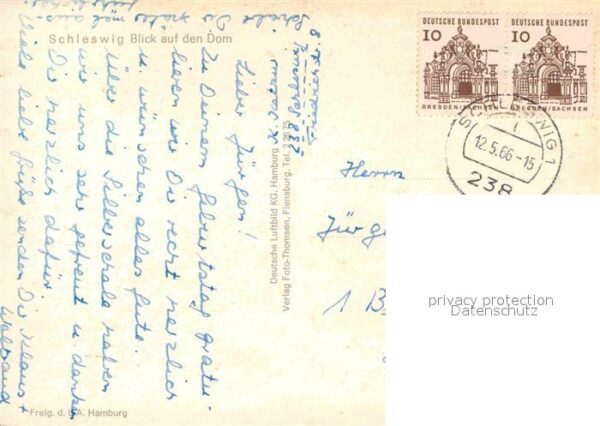 Schleswig Blick auf den Dom
DEUTSCHE BUNDESPOST
10
DRESDEN/SACHSEN
DEUTSCHE BUNDESPOST
10
DRESDEN/SACHSEN
SCHLESWIG 1
12.5.66-15
238
Lieber Jürgen!
Zu Deinem Geburtstag gratu-
lieren wir Dir recht herzlich
u. wünschen alles Gute.
Über die Silberschale haben
wir uns sehr gefreut u. danken
Dir herzlich dafür.
Viele liebe Grüße senden Dir Klaus +
Waltraud
Schreibe Dir später
mal aus-
führlicher
238 Schleswig
Friedrichstr. 8
Deutsche Luftbild KG. Hamburg
Verlag Foto-Thomsen, Flensburg, Tel. 2 28 75
Herrn
Jürg
1 B
privacy protection
Datenschutz
Freig. d. L.A. Hamburg